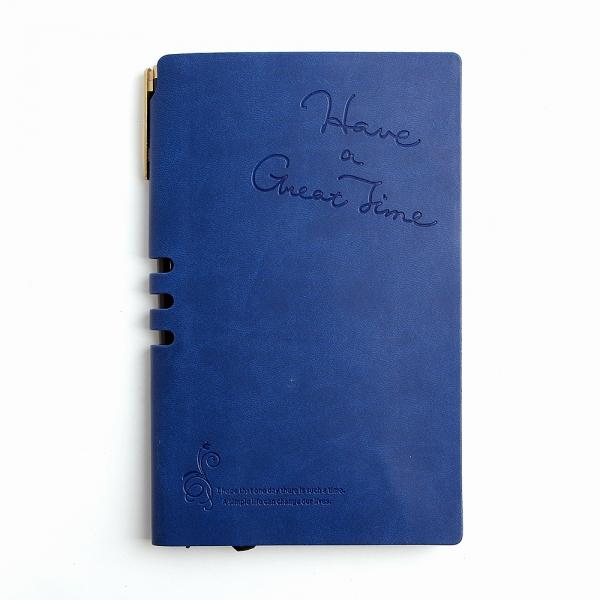 Have
a
Great Time
I hope that one day there is such a time.
A simple life can change our lives.